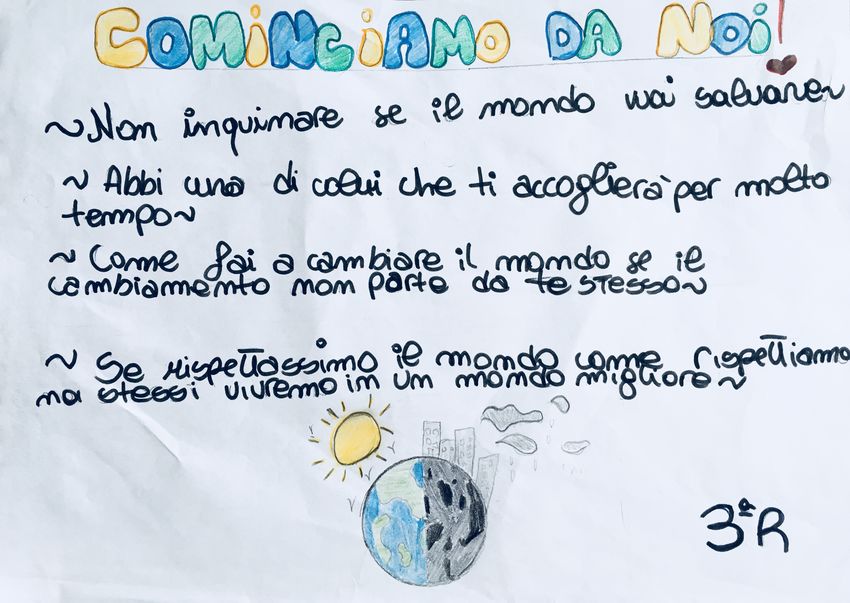 COMINCIAMO DA NOI!
~ Non inquinare se il mondo vuoi salvare~
~ Abbi cura di colui che ti accoglierà per molto
tempo~
~ Come fai a cambiare il mondo se il
cambiamento non parte da te stesso~
~ Se rispettassimo il mondo come rispettiamo
noi stessi vivremo in un mondo migliore~
3ªR